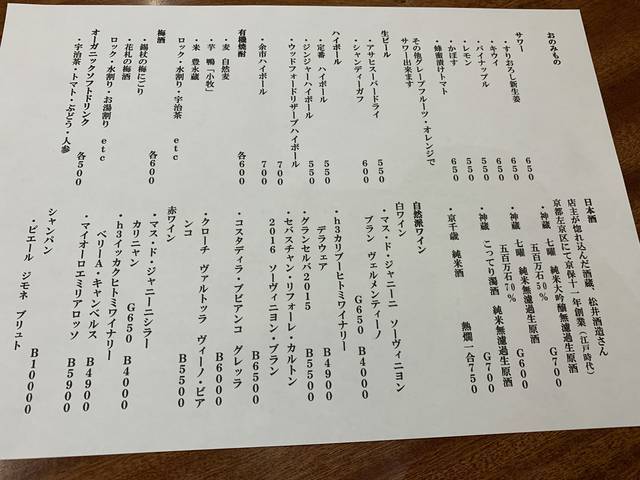 おのみもの
サワー
・すりおろし新生姜 650
・キウイ 650
・パイナップル 550
・レモン 550
・かぼす 650
・蜂蜜漬けトマト 650
その他グレープフルーツ・オレンジで
サワー出来ます
生ビール
・アサヒスーパードライ 550
・シャンディーガフ 600
ハイボール
・定番 ハイボール 550
・ジンジャーハイボール 550
・ウッドフォードリザーブハイボール 700
・余市ハイボール 700
有機焼酎 各600
・麦 自然麦
・芋 鴨「小牧」
・米 豊永蔵
ロック・水割り・宇治茶 etc
梅酒 各600
・錫杖の梅にごり
・花札の梅酒
ロック・水割り・お湯割り etc
オーガニックソフトドリンク 各500
・宇治茶・トマト・ぶどう・人参
日本酒
店主が惚れ込んだ酒蔵、松井酒造さん
京都左京区にて京保十一年創業(江戸時代)
・神蔵 七曜 純米大吟醸無濾過生原酒
五百万石50% G700
・神蔵 七曜 純米無濾過生原酒
五百万石70% G600
・神蔵 こってり濁酒 純米無濾過生原酒
G700
・京千歳 純米酒 熱燗一合750
自然派ワイン
白ワイン
・マス・ド・ジャニーニ ソーヴィニヨン
ブラン ヴェルメンティーノ
G650 B4000
・h3カリブーヒトミワイナリー
デラウェア B4900
・グランセルバ2015 B5500
・セバスチャン・リフォーレ・カルトン
2016 ソーヴィニヨン・ブラン
B6500
・コスタディラ・ブビアンコ グレッラ
B6000
・クローチ ヴァルトッラ ヴィーノ・ビア
ンコ B5500
赤ワイン
・マス・ド・ジャニーニシラー
カリニャン G650 B4000
・h3イッカクヒトミワイナリー
ベリーA・キャンベルス B4900
・マイオーロエミリアロッソ B5900
シャンパン
・ピエール ジモネ ブリュト
B10000